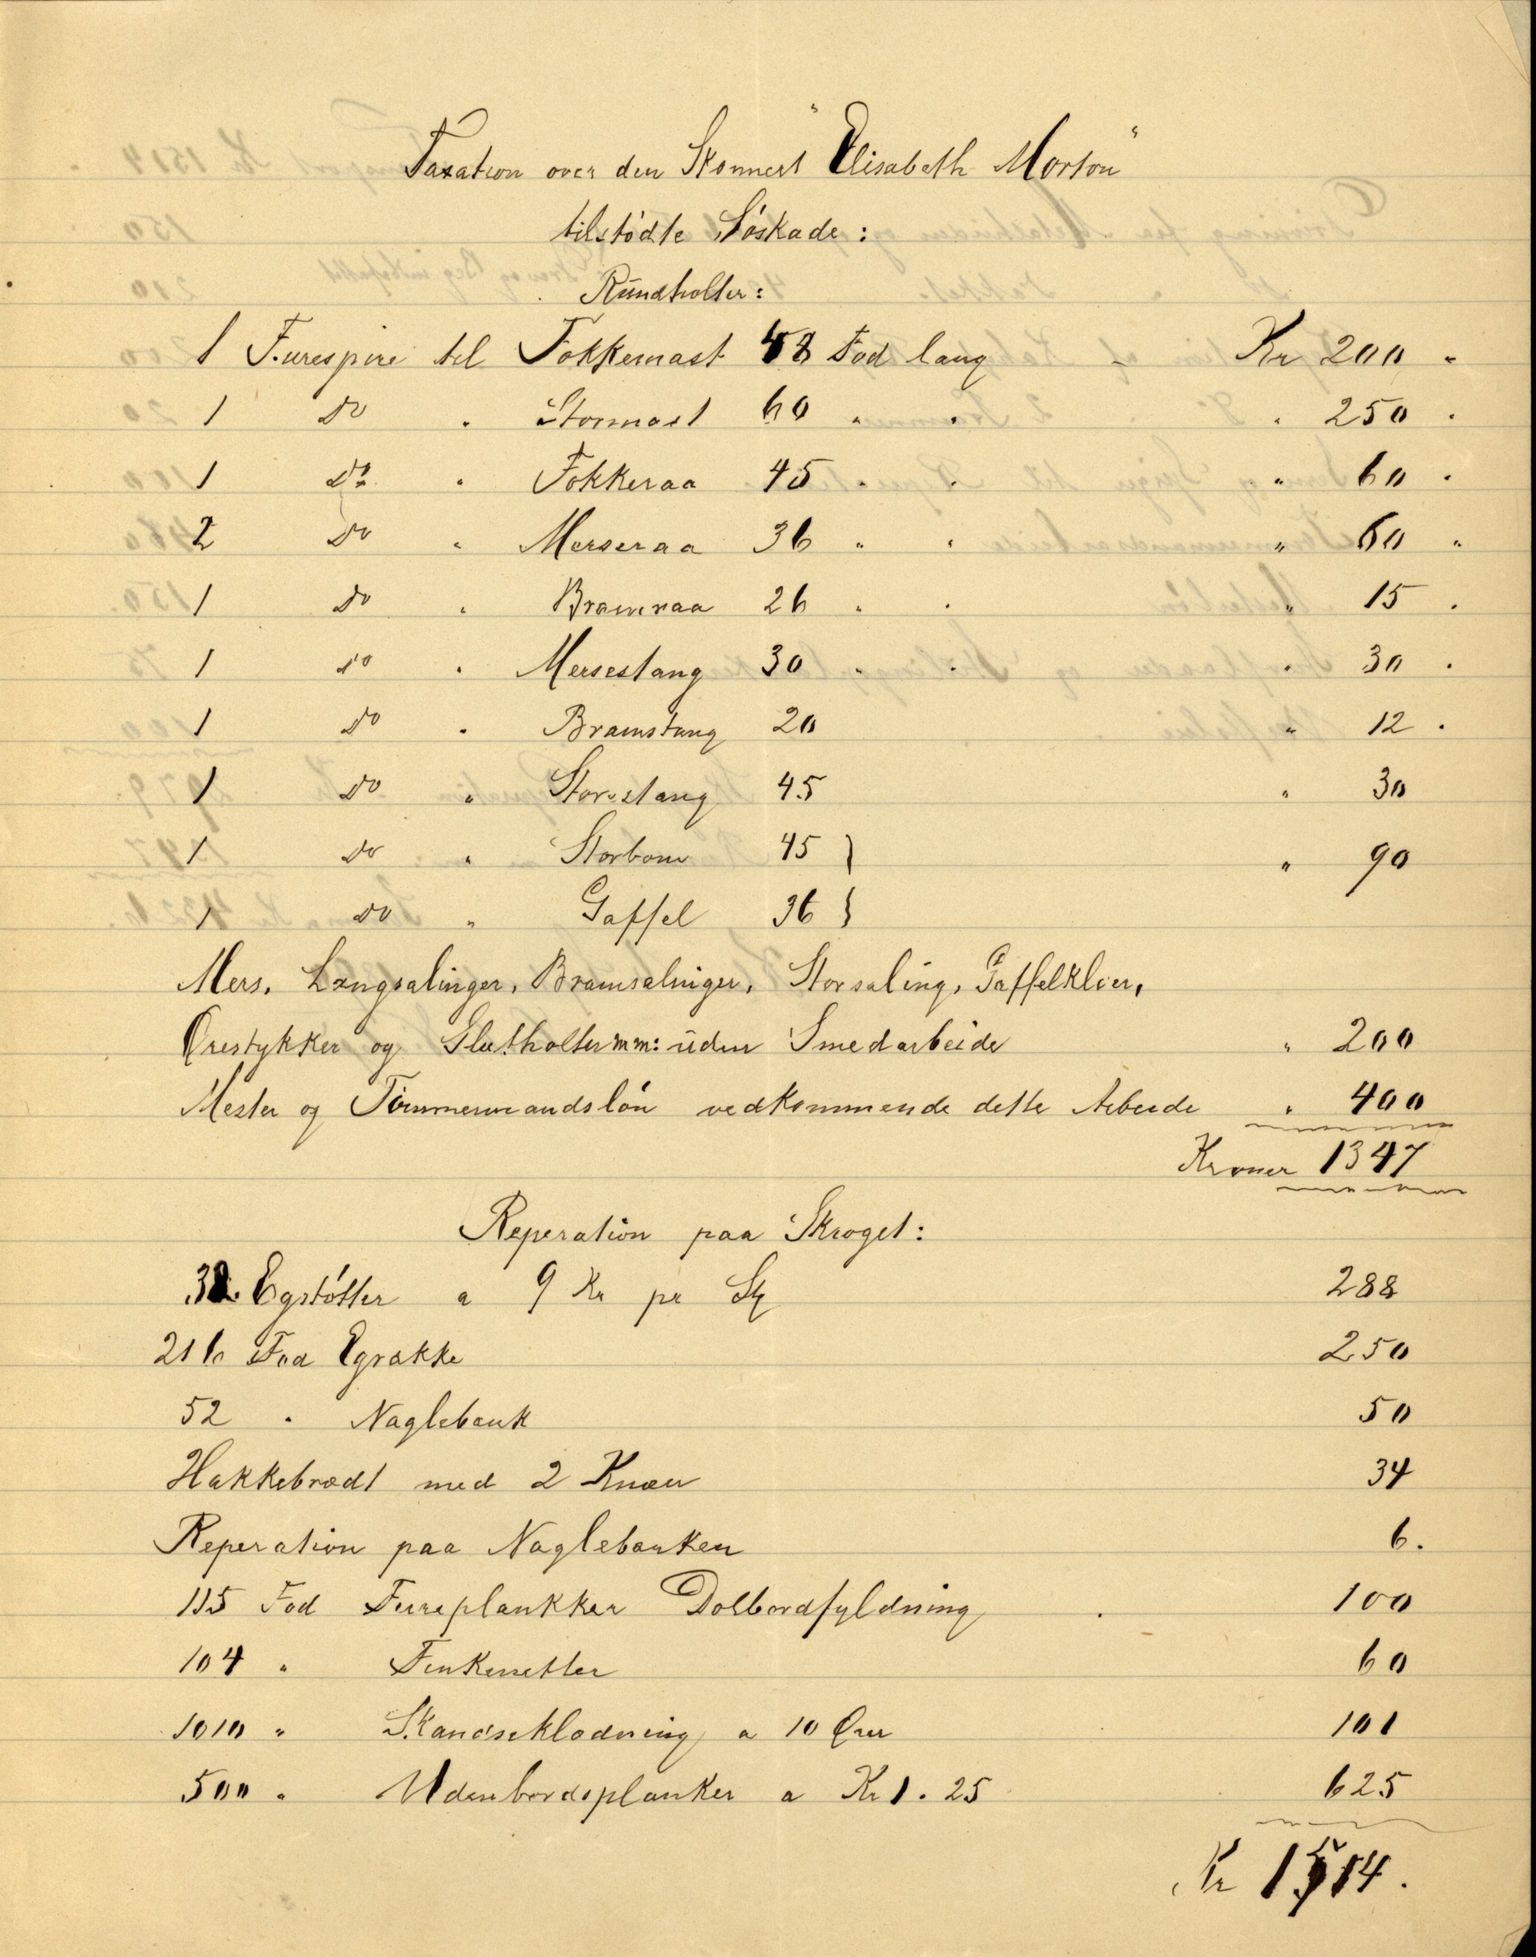 Taxation over den Skonnert "Elisabeth Morton"
tilstødte Søskade:
Rundholter:
1 Furespire til Fokkemast 48 Fod lang - Kr 200 "
1 Do " Stormast 60 " " " 250 "
1 Do " Fokkeraa 45 " " " 60 "
2 Do " Merseraa 36 " " " 60 "
1 Do " Bramraa 26 " " " 15 "
1 Do " Mersestang 30 " " " 30 "
1 Do " Bramstang 20 " 12 "
1 Do " Storstang 45 " 30
1 Do " Storbom 45 } " 90
1 Do " Gaffel 36 }
Mers, Langsalinger, Bramsalinger, Storsaling, Gaffelkloer,
Ørestykker og Slutholter m m: uden Smedarbeide " 200
Mester og Tømmermandsløn vedkommende dette Arbeide " 400
Kroner 1347
Reperation paa Skroget:
32 Egstøtter a 9 Kr pr St 288
216 Fod Egrække 250
52 " Naglebank 50
Hakkebrædt med 2 Knæer 34
Reperation paa Naglebanken 6.
115 Fod Fureplankker Dolbordfyldning 100
104 " Finkenetter 60
1010 " Skandseklædning a 10 Øre 101
500 " Udenbordsplanker a Kr 1.25 625
Kr 1514.